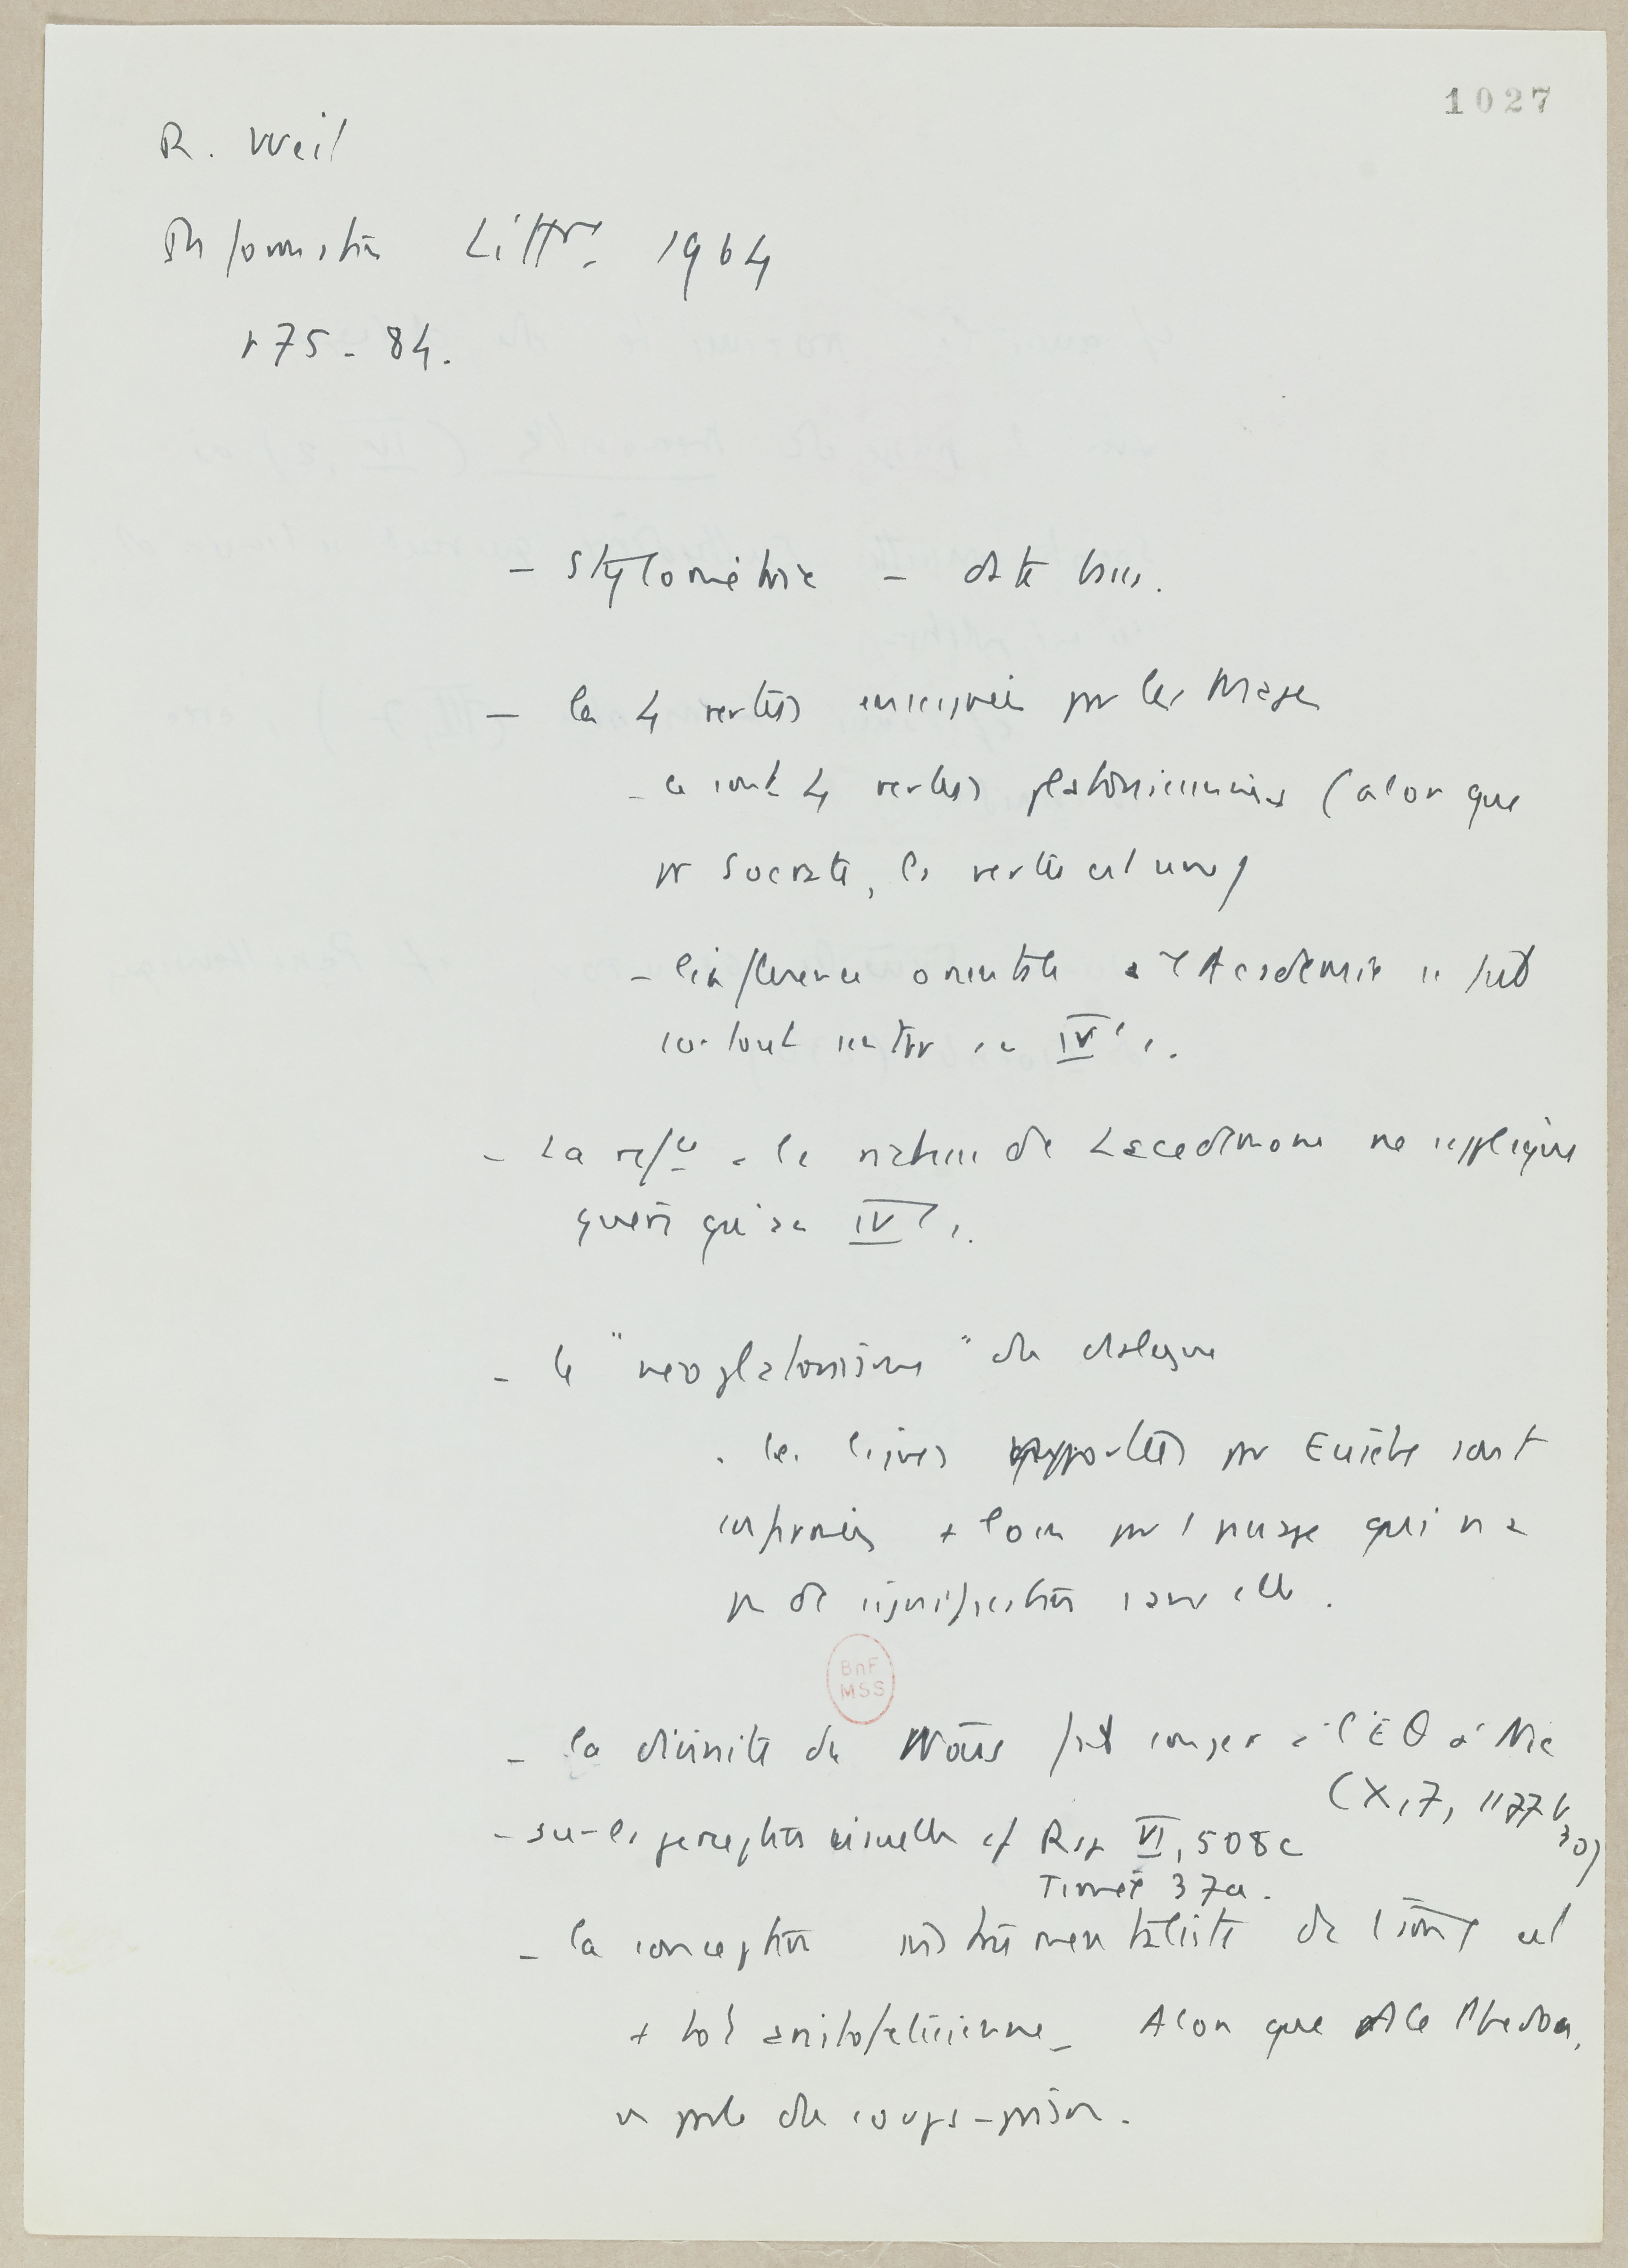 1027
R. Weil
Information Littre 1964
p 75-84.
- Stylométrie - date bas.
- les 4 vertus enseignées par les Mages
- ce sont 4 vertus platoniciennes (alors que
pr Socrate, la vertu est une)
- l'influence orientale à l'Académie se fait
surtout sentir au IVe s.
- La refce à la richesse de Lacedemone ne s'applique
guère qu'au IVe s.
- le "neoplatonisme" du dialogue
. les lignes apportées par Eusèbe sont
confirmées + loin par 1 passage qui n'a
pas de signification sans elles.
BnF
MSS
- la divinité du Noûs fait songer à l'E θ à Nic
(X, 7, 1177 b
30)
- sur la perception visuelle cf Rep VI, 508c
Timée 37a.
- la conception instrumentaliste de l'âme est
+ tot aristotélicienne - Alors que le Phedon,
parle du corps-prison.